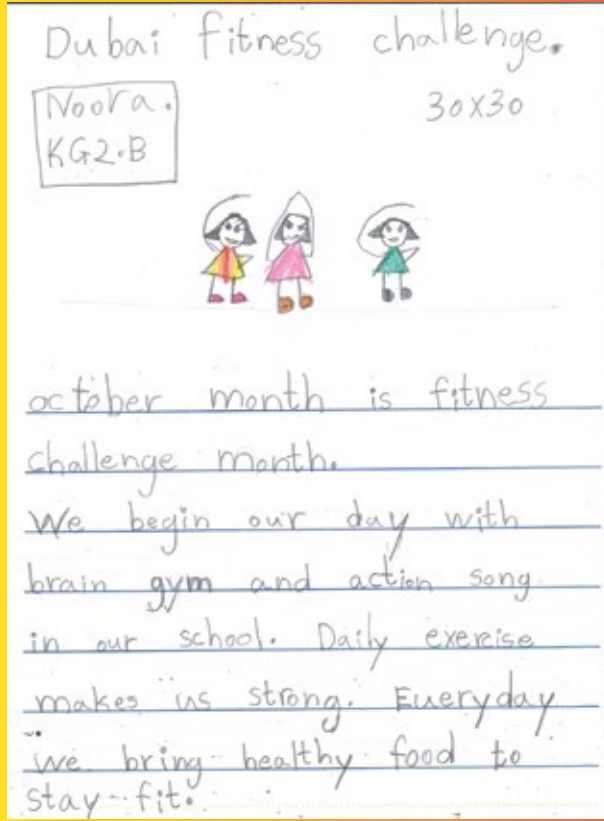 Dubai fitness challenge.
Noora.
KG2.B
30x30
october month is fitness
challenge month.
We begin our day with
brain gym and action song
in our school. Daily exercise
makes us strong. Everyday
we bring healthy food to
stay fit.